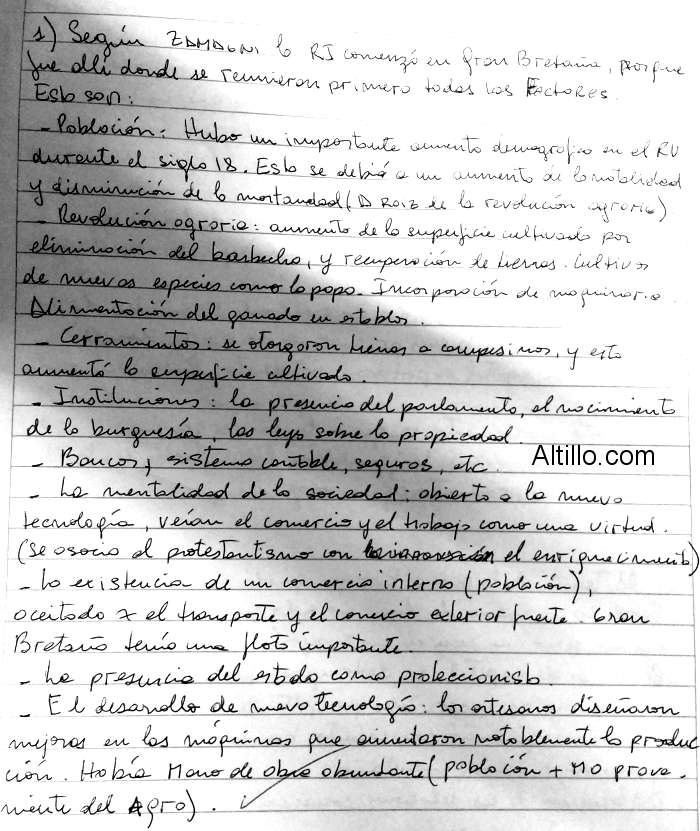 1) Según ZAMAGNI la RI comenzó en Gran Bretaña, porque
fue allí donde se reunieron primero todos los FACTORES.
Esto son:
- Población: Hubo un importante aumento demografico en el RU
durante el siglo 18. Esto se debió a un aumento de la natalidad
y disminución de la mortandad (A RAIZ de la revolución agraria)
- Revolución agraria: aumento de la superficie cultivada por
eliminación del barbecho, y recuperación de tierras. Cultivos
de nuevas especies como la papa. Incorporación de maquinaria.
Alimentación del ganado en establos.
- Cerramientos: se otorgaron tierras a campesinos, y esto
aumentó la superficie cultivada.
- Instituciones: la presencia del parlamento, el nacimiento
de la burguesía, las leys sobre la propiedad.
- Bancos, sistema contable, seguros, etc.
Altillo.com
- La mentalidad de la sociedad: abierta a la nueva
tecnología, veían el comercio y el trabajo como una virtud.
(Se asocia al protestantismo con el enriquecimiento)
- La existencia de un comercio interno (población),
aceitado x el transporte y el comercio exterior fuerte. Gran
Bretaña tenía una flota importante.
- La presencia del estado como proteccionista.
- El desarrollo de nueva tecnología: los artesanos diseñaron
mejoras en las máquinas que aumentaron notablemente la produc
ción. Había Mano de obra abundante (población + MO prove-
niente del Agro).